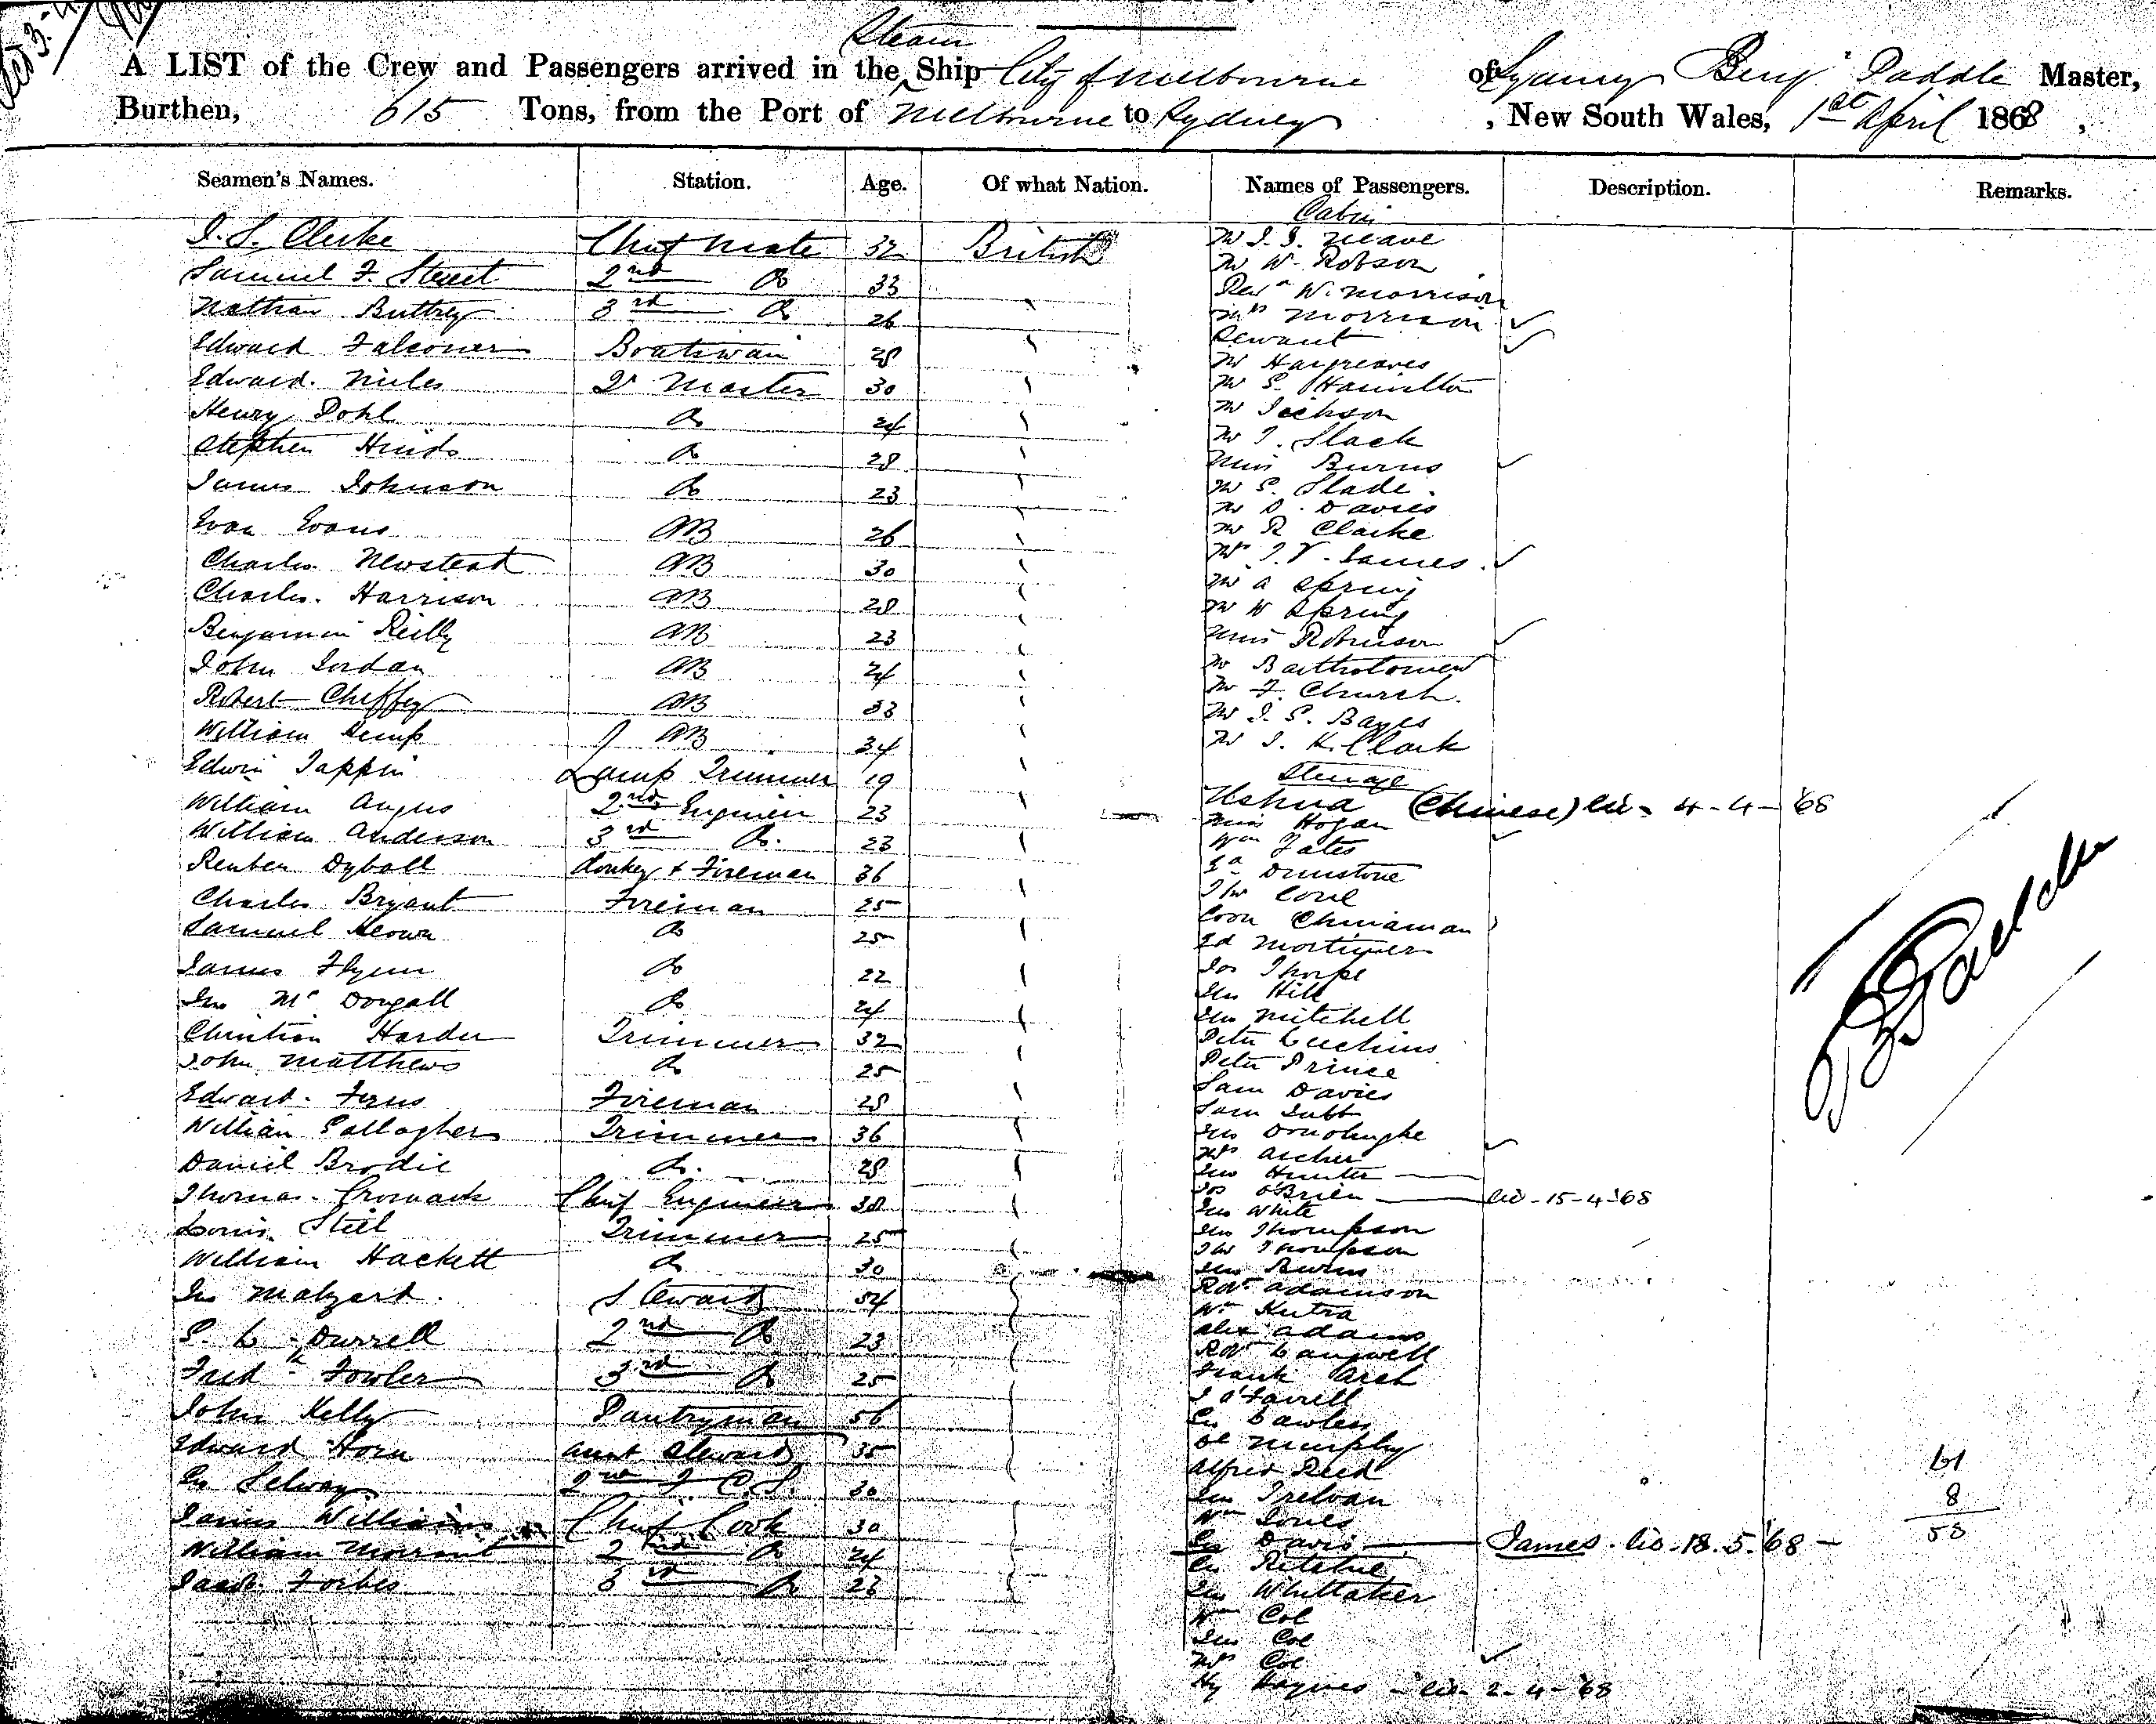 Steam
A LIST of the Crew and Passengers arrived in the Ship City of Melbourne of Sydney Benj Paddle Master,
Burthen, 615 Tons, from the Port of Melbourne to Sydney, New South Wales, 1st April 1868,
Seamen's Names. Station. Age. Of what Nation. Names of Passengers. Description. Remarks.
J. S. Clarke Chief Mate 32 British
Samuel F. Street 2nd Do 33
Nathan Buttrey 3rd Do 26
Edward Falconer Boatswain 28
Edward Miles Qr Master 30
Henry Pohl Do 24
Stephen Hinds Do 28
James Johnson Do 23
Evan Evans AB 26
Charles Newstead AB 30
Charles Harrison AB 28
Benjamin Reilly AB 23
John Jordan AB 24
Robert Cheffey AB 33
William Kemp AB 34
Edwin Tappin Lamp Trimmer 19
William Angus 2nd Engineer 23
William Anderson 3rd Do. 23
Reuben Dyball donkey & Fireman 36
Charles Bryant Fireman 25
Samuel Keown Do 25
James Flynn Do 22
Jno McDougall Do 24
Christian Harder Trimmer 32
John Matthews Do 25
Edward Ferris Fireman 28
William Gallagher Trimmer 36
Daniel Brodie Do. 28
Thomas Cromack Chief Engineer 38
Louis Steel Trimmer 25
William Hackett Do 30
Jno Malzard Steward 54
S. C. Durrell 2nd Do 23
Fredk Fowler 3rd Do 25
John Kelly Pantryman 56
Edward Horn Asst Steward 35
Geo Selway 2nd 30
James Williams Chief Cook 30
William Morrant 2nd Do 24
Jacob Forbes 3rd Do 23
Cabin
Mr J. J. Neave
Mr W. Robson
Revd W. Morrison
Mrs Morrison
Servant
Mr Hargreaves
Mr S. Hamilton
Mr Jackson
Mr T. Slack
Miss Burns
Mr S. Slade.
Mr D. Davies
Mr R Clarke
Mrs J. V. James
Mr A Spring
Mr W Spring
Miss Robinson
Mr Bartholomew
Mr F. Church.
Mr J. S. Bayes
Mr J. K. Clark
Steerage
Ushua (Chinese) 4-4-'68
Miss Hogan
Wm Yates
Dunstone
Thos Cone
Coon Chinaman
Ed Mortimer
Jos Thorpe
Jno Hill
Jno Mitchell
Peter Cuchins
Peter Prince
Sam Davies
Sam Jubb
Jno Donohughe
Mrs Archer
Jno Hunter
Jos O'Brien 15-4-'68
Jno White
Jno Thompson
Thos Thompson
Jno Burns
Robt Adamson
Wm Kutra
Alex Adams
Robt Cangwell
Frank Arch
J O'Farrell
Geo Lawless
Murphy
Alfred Reed
Jno Trelvan
Wm Jones
Geo Davis James. 18.5.'68
Geo Ritchie
Jno Whittaker
Wm Col
Jno Col
Mrs Col
Hy Haynes 2-4-'68
B Paddle
61
8
53